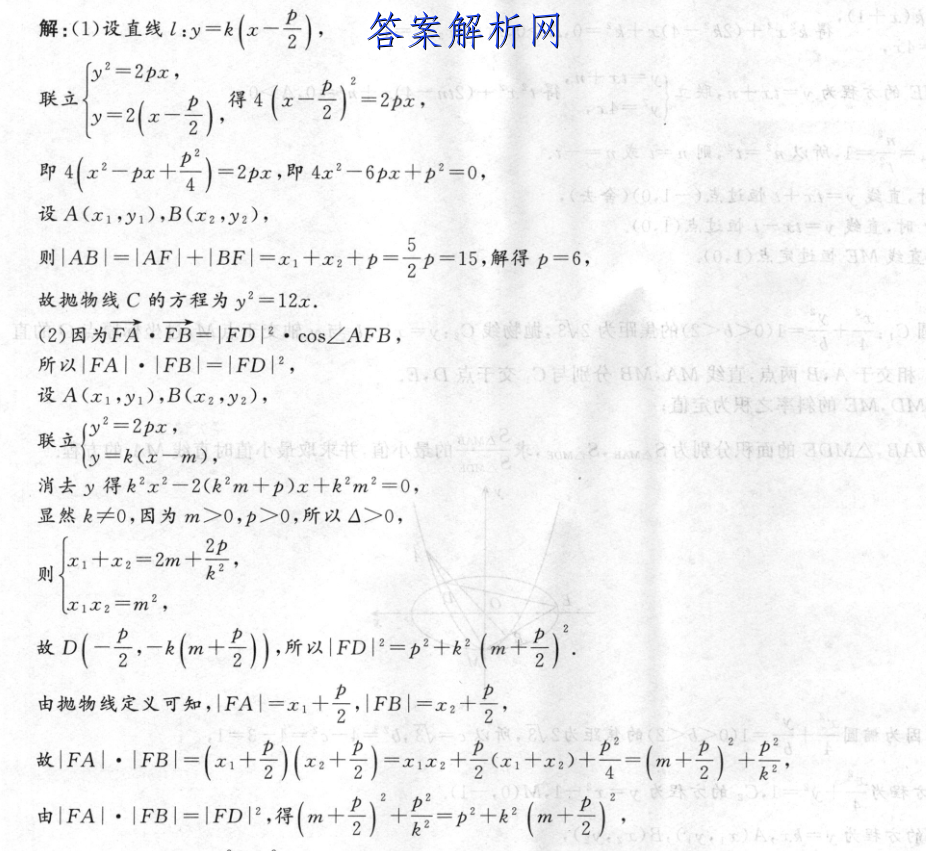 答案解析网
解:(1)设直线 l:y=k(x-p/2),
联立{y²=2px, y=2(x-p/2), 得 4(x-p/2)²=2px,
即 4(x²-px+p²/4)=2px,即 4x²-6px+p²=0,
设 A(x₁,y₁),B(x₂,y₂),
则|AB|=|AF|+|BF|=x₁+x₂+p=5/2p=15,解得 p=6,
故抛物线 C 的方程为 y²=12x.
(2)因为FA→·FB→=|FD|²·cos∠AFB,
所以|FA|·|FB|=|FD|²,
设 A(x₁,y₁),B(x₂,y₂),
联立{y²=2px, y=k(x-m),
消去 y 得 k²x²-2(k²m+p)x+k²m²=0,
显然 k≠0,因为 m>0,p>0,所以 Δ>0,
则{x₁+x₂=2m+2p/k², x₁x₂=m²,
故 D(-p/2,-k(m+p/2)),所以|FD|²=p²+k²(m+p/2)².
由抛物线定义可知,|FA|=x₁+p/2,|FB|=x₂+p/2,
故|FA|·|FB|=(x₁+p/2)(x₂+p/2)=x₁x₂+p/2(x₁+x₂)+p²/4=(m+p/2)²+p²/k²,
由|FA|·|FB|=|FD|²,得(m+p/2)²+p²/k²=p²+k²(m+p/2)²,